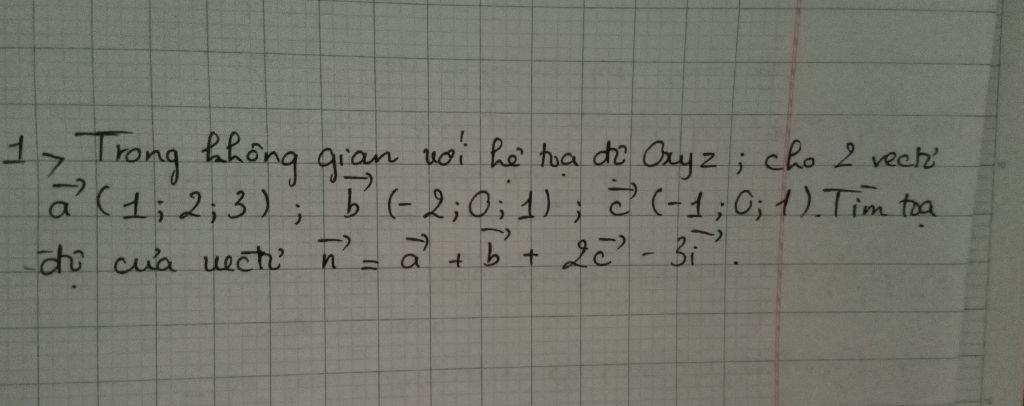 1> Trong không gian với hệ tọa độ Oxyz ; cho 2 vectơ
a⃗ (1; 2; 3) ; b⃗ (-2; 0; 1) ; c⃗ (-1; 0; 1). Tìm tọa
độ của vectơ n⃗ = a⃗ + b⃗ + 2c⃗ - 3i⃗ .